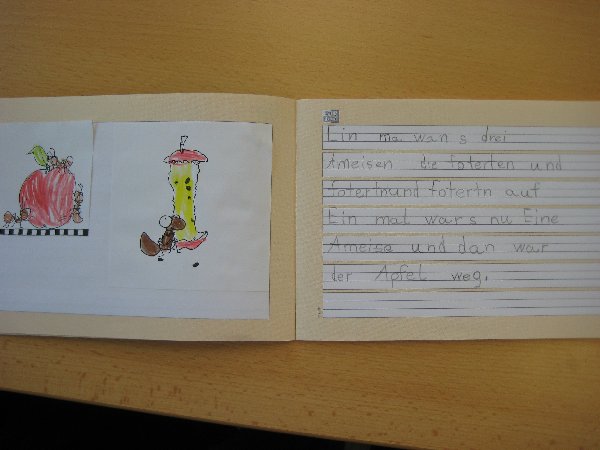 Ein ma wan s drei
Ameisen die foterten und
fotertnund fotertn auf
Ein mal wars nu Eine
Ameise und dan war
der Apfel weg.